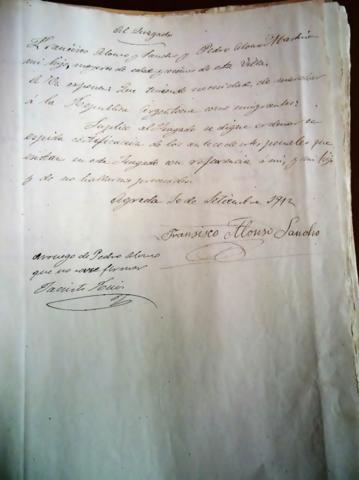 del Juzgado
Francisco Alonso Sancho y Pedro Alonso Machín
mi hijo mayores de edad y vecinos de esta Villa
á V. expone: Que teniendo necesidad de marchar
á la Republica Argentina como emigrantes:
Suplica al Juzgado se digne ordenar se
expida certificacion de los antecedentes penales que
existan en este Juzgado con referencia á mi, y mi hijo
y de no hallarnos procesados
Agreda 10 de Setiembre 1912
Francisco Alonso Sancho
arruego de Pedro Alonso
que no save firmar
Jacinto Ruiz